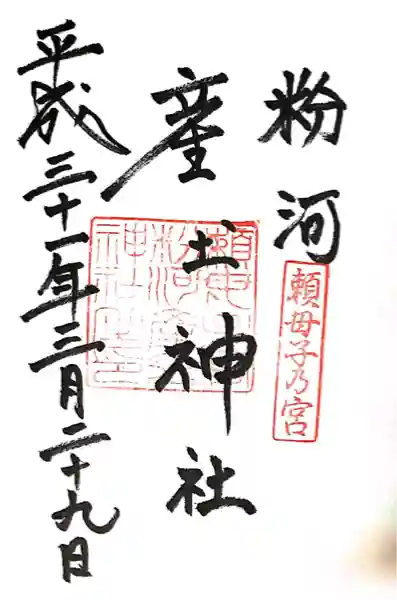 粉河
頼母子乃宮
産土神社
平成三十一年三月二十九日